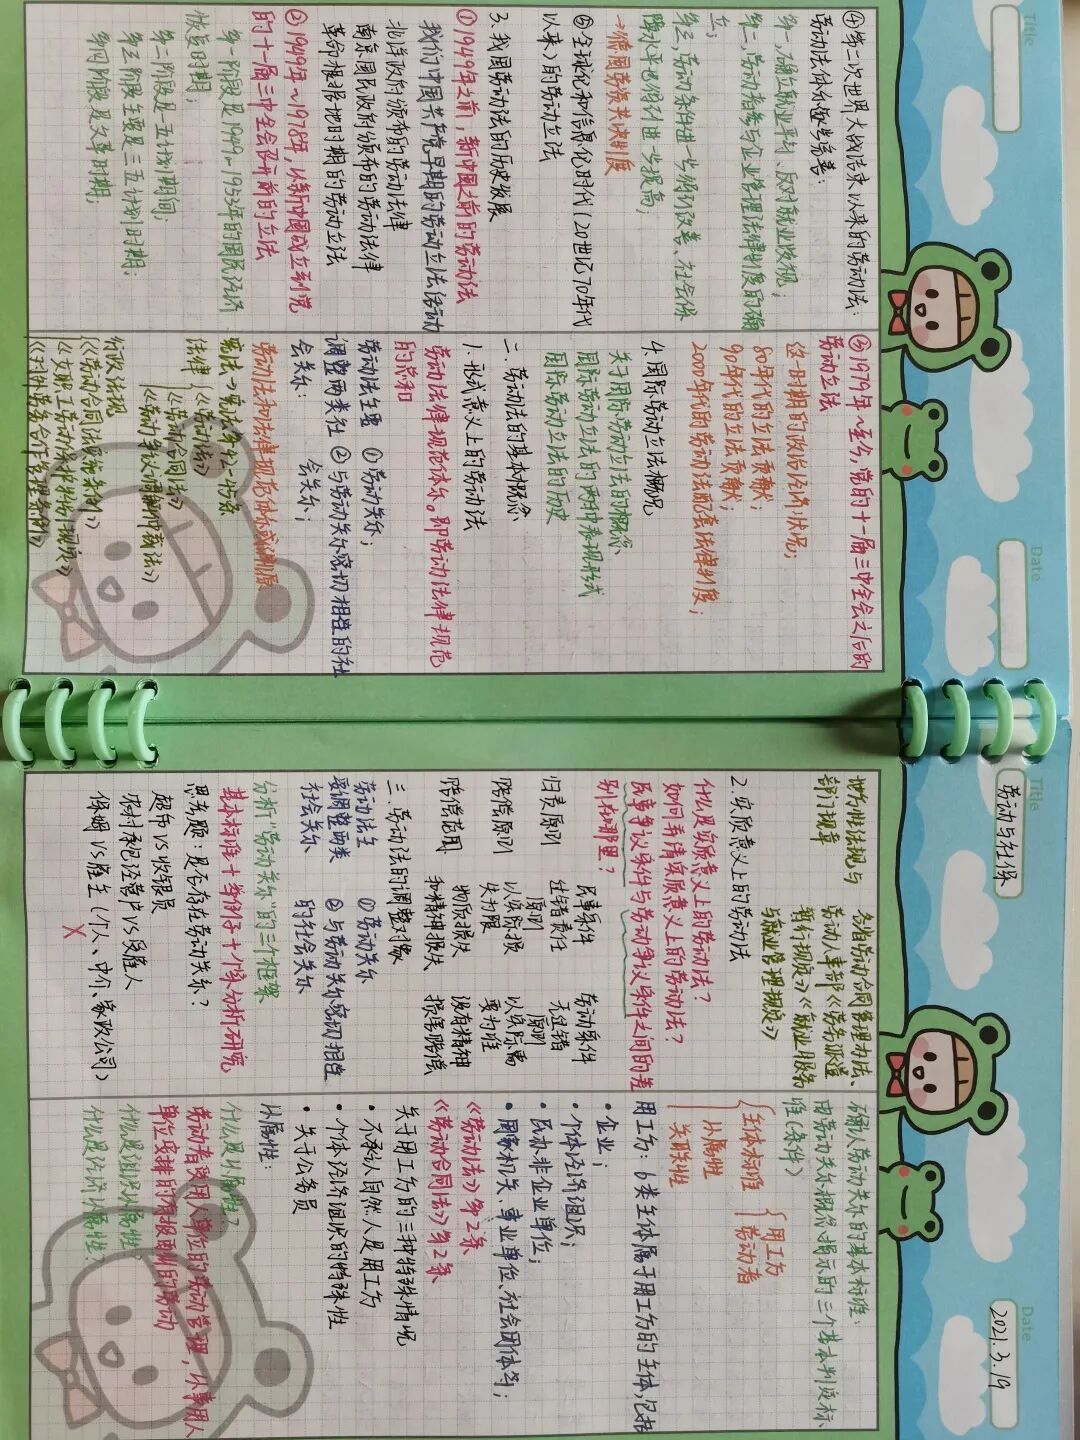 Title
Date
④第二次世界大战结束以来的劳动法：
劳动法体系趋于完善：
第一，确立就业平等、反对就业歧视；
第二，劳动者参与企业管理法律制度的确
立；
第三，劳动条件进一步得到改善、社会保
障水平也得到进一步提高；
→德国劳资共决制度
⑤全球化和信息化时代（20世纪70年代
以来）的劳动立法
3.我国劳动法的历史发展
①1949年之前，新中国之前的劳动法
我们中国共产党早期的劳动立法活动
北洋政府颁布的劳动法律
南京国民政府颁布的劳动法律
革命根据地时期的劳动立法
②1949年~1978年，从新中国成立到党
的十一届三中全会召开前的立法
第一阶段是1949~1953年的国民经济
恢复时期；
第二阶段是一五计划期间；
第三阶段主要是三五计划时期；
第四阶段是文革时期；
③1979年~至今，党的十一届三中全会之后的
劳动立法
这一时期的政治经济状况；
80年代的立法贡献；
90年代的立法贡献；
2000年代的劳动法配套法律制度；
4.国际劳动立法概况
关于国际劳动立法的概念
国际劳动立法的两种表现形式
国际劳动立法的历史
二.劳动法的基本概念
1.形式意义上的劳动法
劳动法律规范体系。即劳动法律规范
的总和
劳动法主要 ①劳动关系；
调整两类社 ②与劳动关系密切相连的社
会关系： 会关系；
劳动法和法律规范体系或渊源
宪法→宪法第42~45条
法律《劳动法》
《劳动合同法》
《劳动争议调解仲裁法》
行政法规
《劳动合同法实施条例》
《女职工劳动保护特别规定》
《对外劳务合作管理条例》
Title 劳动与社保
Date 2021.3.19
地方性法规与 各省劳动合同管理办法、
部门规章 劳动人事部《劳务派遣
暂行规定》《就业服务
与就业管理规定》
2.实质意义上的劳动法
什么是实质意义上的劳动法？
如何弄清实质意义上的劳动法？
民事争议案件与劳动争议案件之间的差
别在哪里？
民事案件 劳动案件
归责原则 过错责任原则 无过错原则
赔偿原则 以实际损失为限 以实际需要为准
赔偿范围 物质损失和精神损失 没有精神损害赔偿
三.劳动法的调整对象
劳动法主 ①劳动关系
要调整两类 ②与劳动关系密切相连
社会关系 的社会关系
分析“劳动关系”的三个框架
基本标准＋举例子＋个案分析研究
思考题：是否存在劳动关系？
超市VS收银员
农村承包经营户VS受雇人
保姆VS雇主（个人、中介、家政公司）
X
确认劳动关系的基本标准：
由劳动关系概念揭示的三个基本判定标
准（条件）
主体标准 用工方
劳动者
从属性
关联性
用工方：6类主体属于用工方的主体，包括
•企业；
•个体经济组织；
•民办非企业单位；
•国家机关、事业单位、社会团体等；
《劳动法》第2条
《劳动合同法》第2条
关于用工方的三种特殊情况
•不承认自然人是用工方
•个体经济组织的特殊性
•关于公务员
从属性：
什么是从属性？
劳动者受用人单位的劳动管理，从事用人
单位安排的有报酬的劳动
什么是组织从属性
什么是经济从属性？